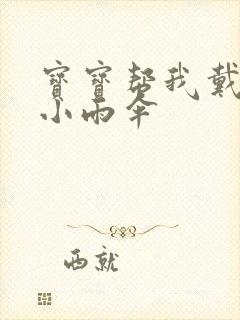 寶寶帮我戴
小雨伞
西就